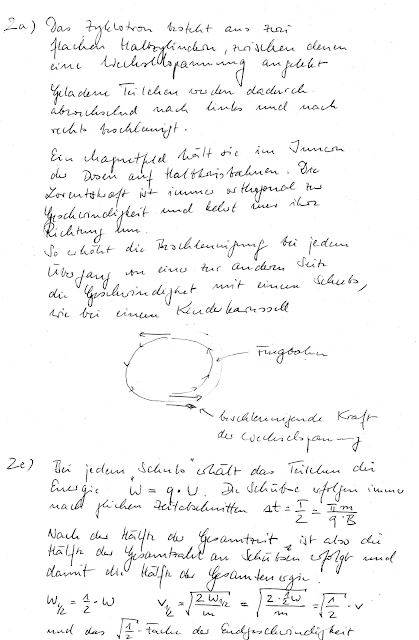 2a) Das Zyklotron besteht aus zwei
flachen Halbzylindern, zwischen denen
eine Wechselspannung anliegt
Geladene Teilchen werden dadurch
abwechselnd nach links und nach
rechts beschleunigt.
Ein Magnetfeld hält sie im Innern
der Dosen auf Halbkreisbahnen. Die
Lorentzkraft ist immer orthogonal zur
Geschwindigkeit und kehrt nur ihre
Richtung um.
So erhöht die Beschleunigung bei jedem
Übergang von einer zur andern Seite
die Geschwindigkeit mit einem Schubs,
wie bei einem Kinderkarussell
Flugbahn
beschleunigende Kraft
der Wechselspannung
2e) Bei jedem "Schubs" erhält das Teilchen die
Energie W = q · U. Die Schübse erfolgen immer
nach gleichen Zeitabschnitten Δt = T/2 = πm/(q·B)
Nach der Hälfte der Gesamtzeit ist also die
Hälfte der Gesamtzahl an Schübsen erfolgt und
damit die Hälfte der Gesamtenergie.
W½ = ½ · W v½ = √(2W½/m) = √(2·½W/m) = √½ · v
und das √½ -fache der Endgeschwindigkeit